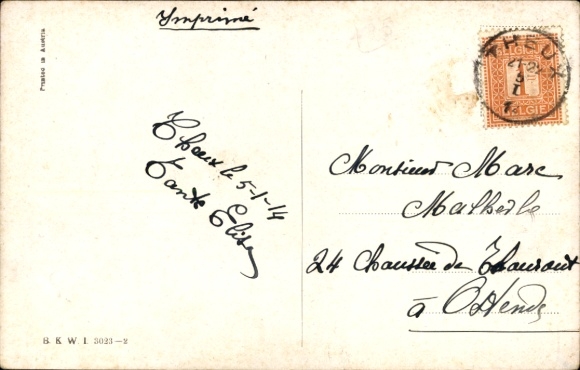 Imprimé
Printed in Austria
THEUX
5
1
1
BELGIE
Theux le 5-1-14
Tante Elise
Monsieur Marc
Malherbe
24 Chaussée de Thourout
à Ostende
B. K. W. I. 3023-2